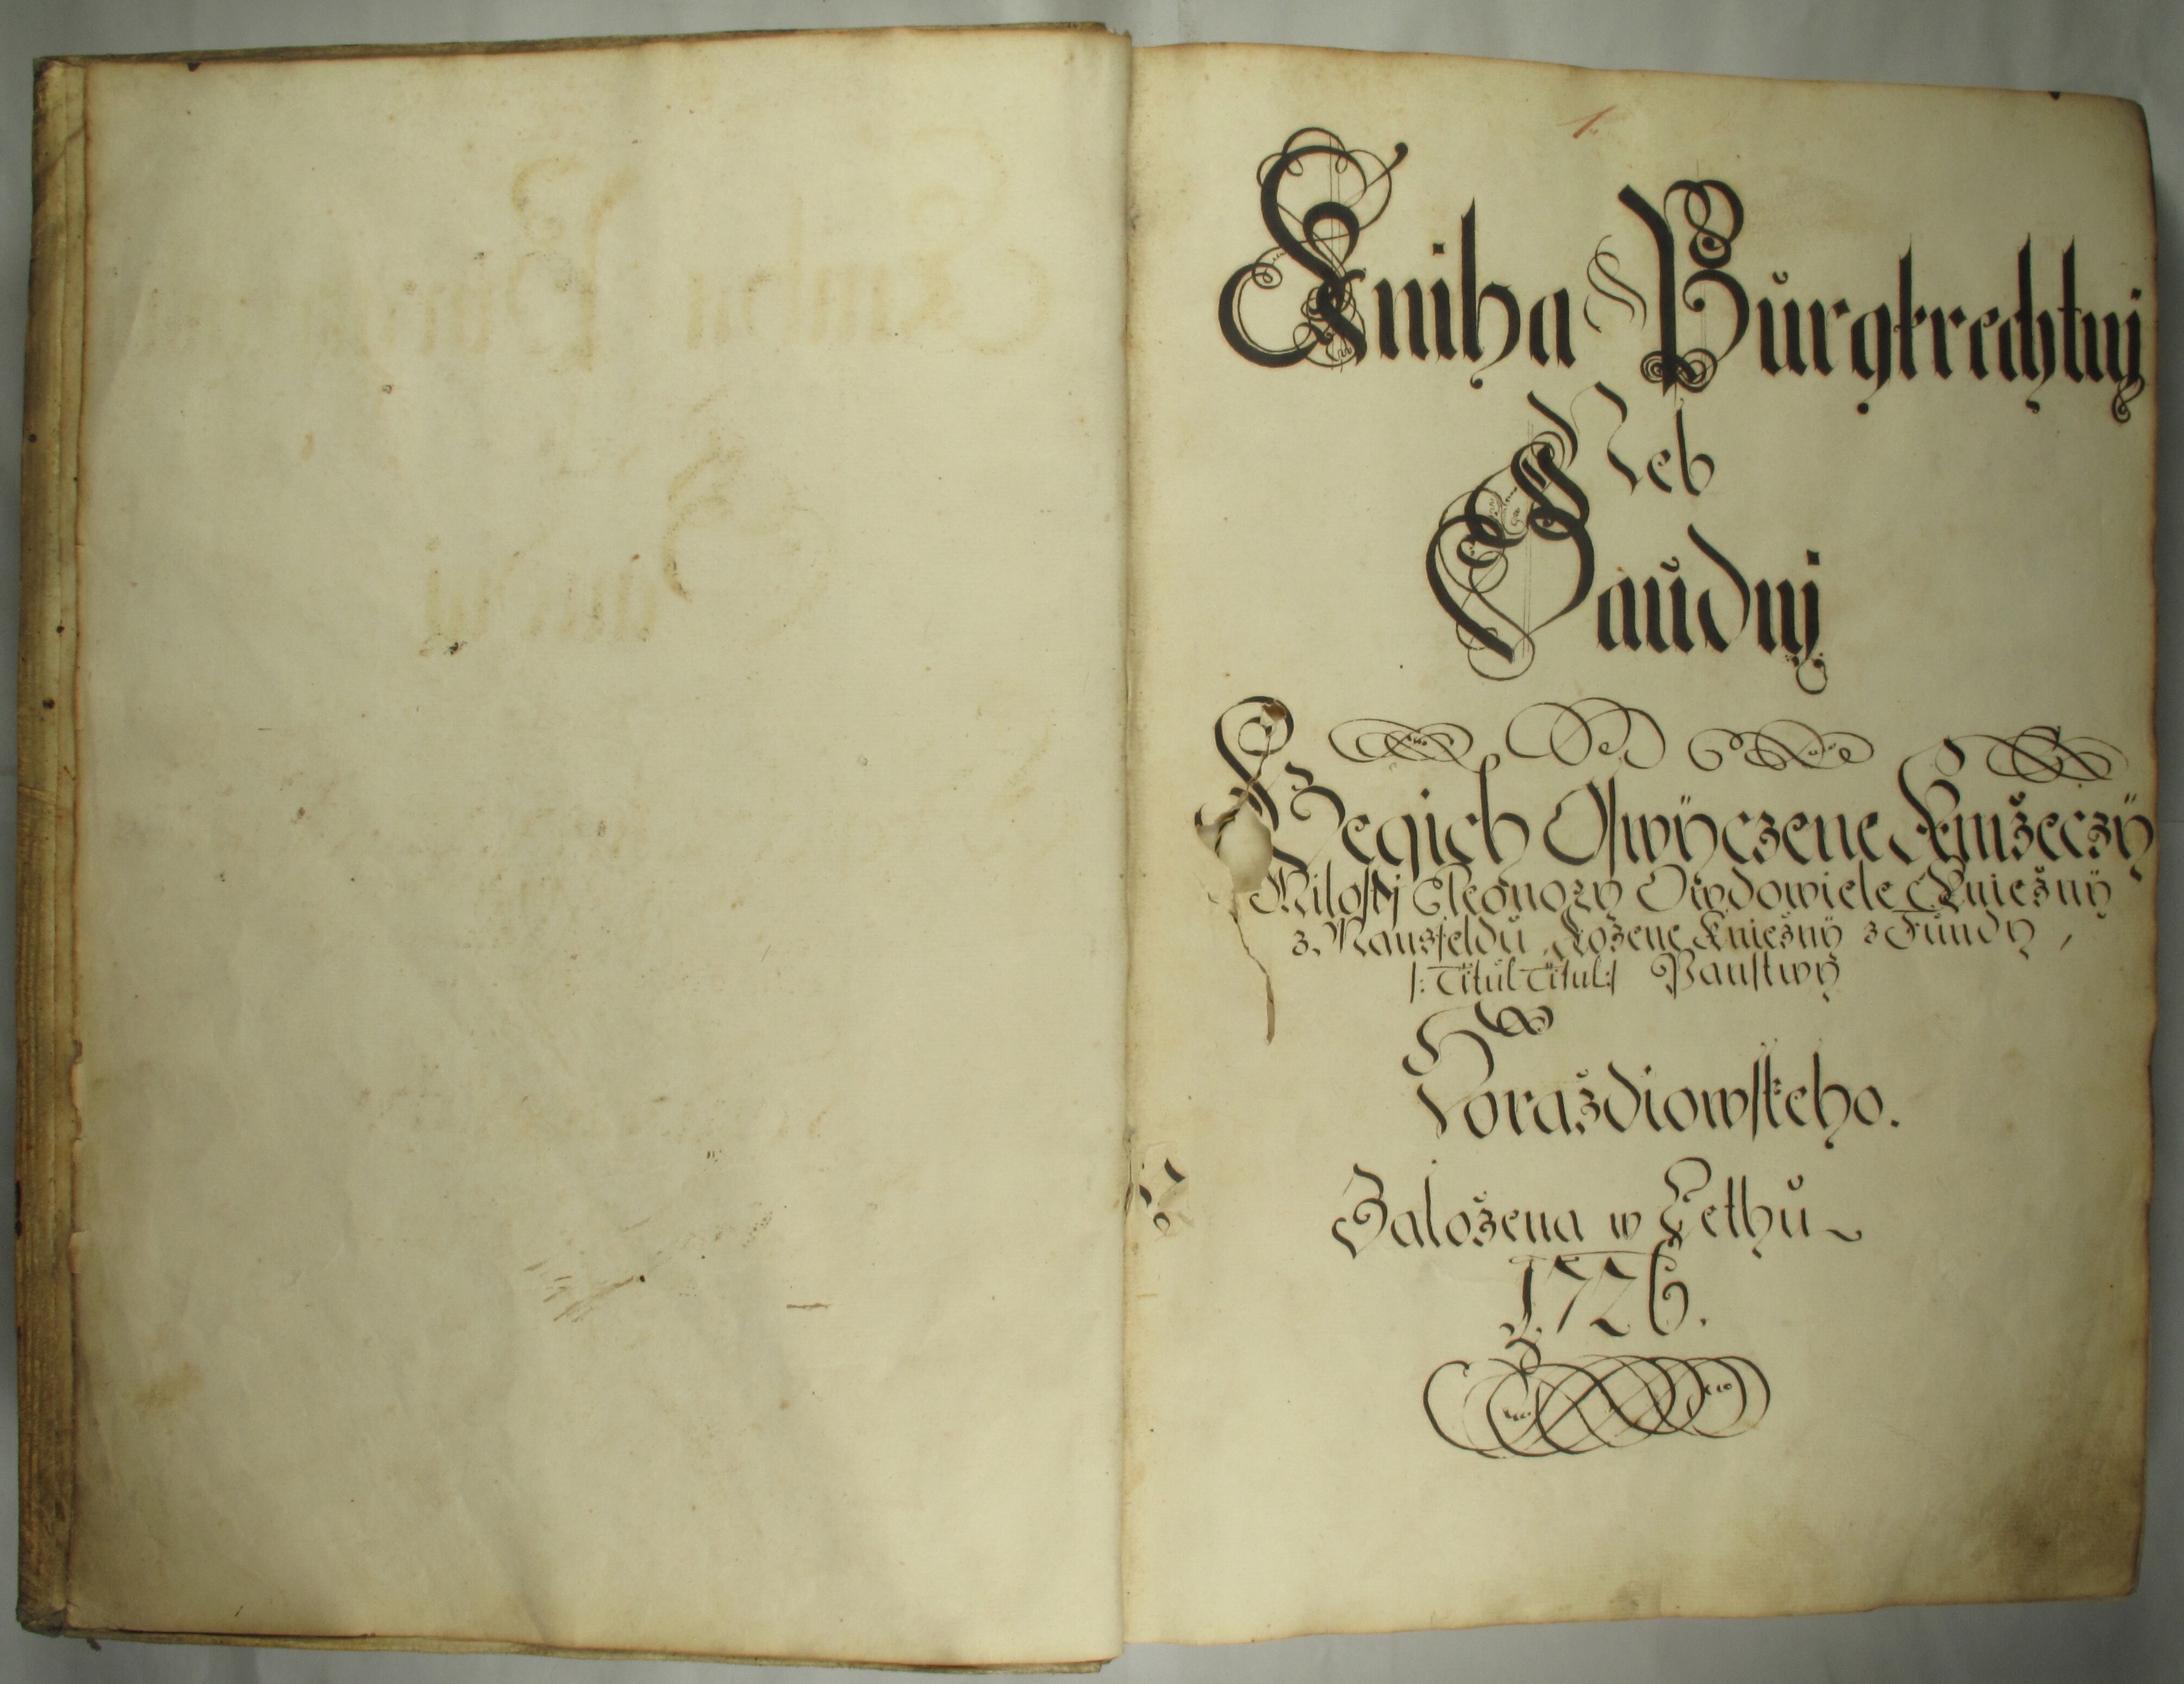 1.
Kniha Půrgkrechtnj
Neb
Saudnj
Gegich Oswÿczene Knižeczÿ
Milostj Eleonorÿ Owdowiele Kniežnÿ
z. Mansfeldu Rožene Kniežnÿ z Fundÿ,
/: Titul Titul:/ Panstwÿ
Horaždiowskeho.
Založena w Lethů
1726.